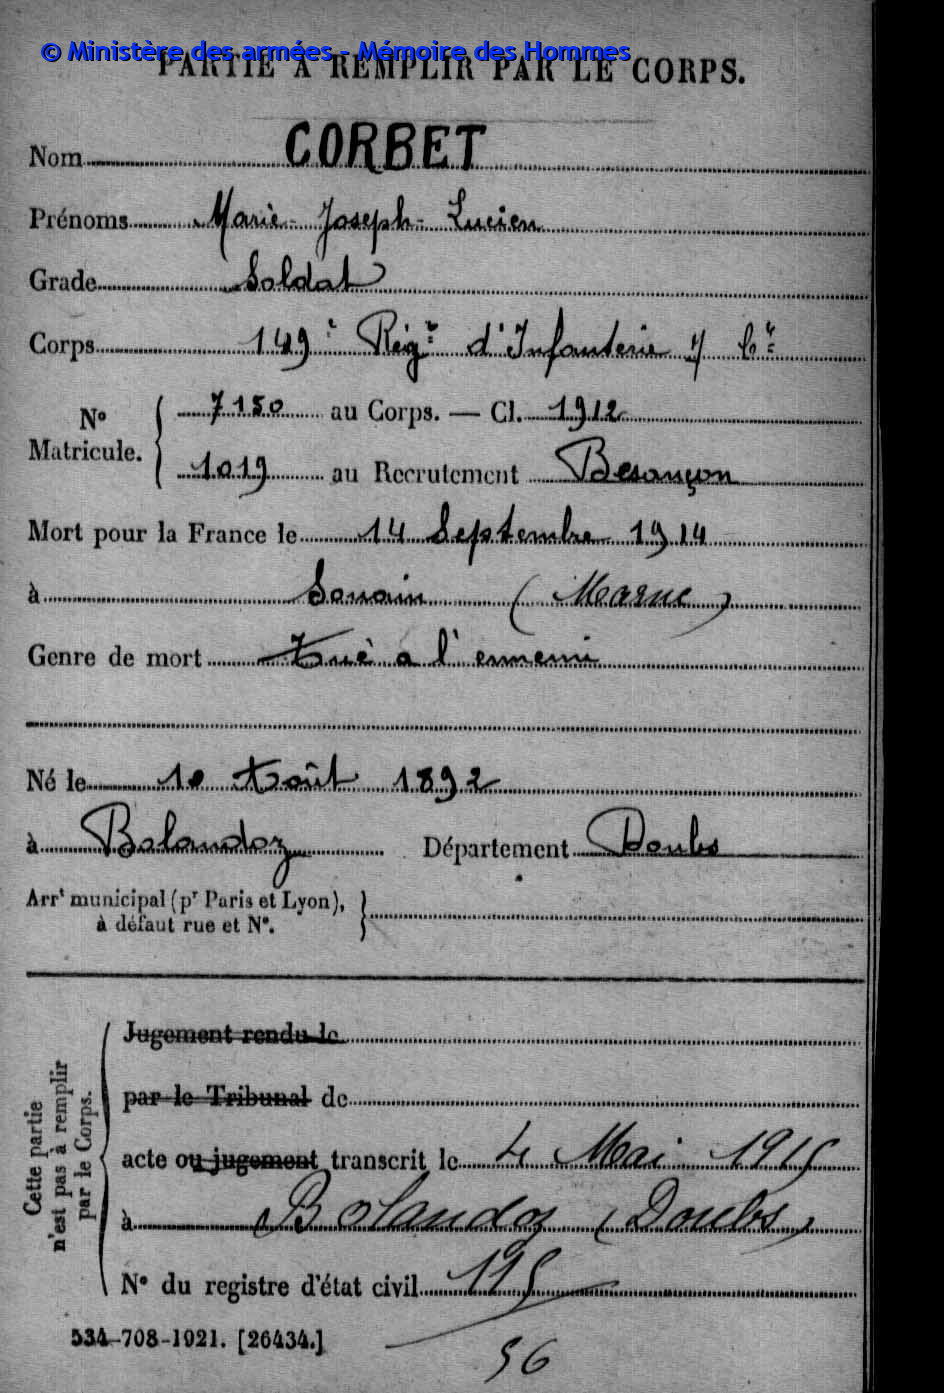 © Ministère des armées - Mémoire des Hommes
PARTIE À REMPLIR PAR LE CORPS.
Nom CORBET
Prénoms Marie-Joseph-Lucien
Grade Soldat
Corps 149e Régt d'Infanterie 7 Cie
N° Matricule. { 7150 au Corps. — Cl. 1912
1019 au Recrutement Besançon
Mort pour la France le 14 Septembre 1914
à Souain (Marne)
Genre de mort Tué a l'ennemi
Né le 10 Août 1892
à Bolandoz Département Doubs
Arrt municipal (pr Paris et Lyon),
à défaut rue et N°.
Cette partie
n'est pas à remplir
par le Corps.
Jugement rendu le
par le Tribunal de
acte ou jugement transcrit le 4 Mai 1915
à Bolandoz (Doubs)
N° du registre d'état civil 115
534-708-1921. [26434.]
56